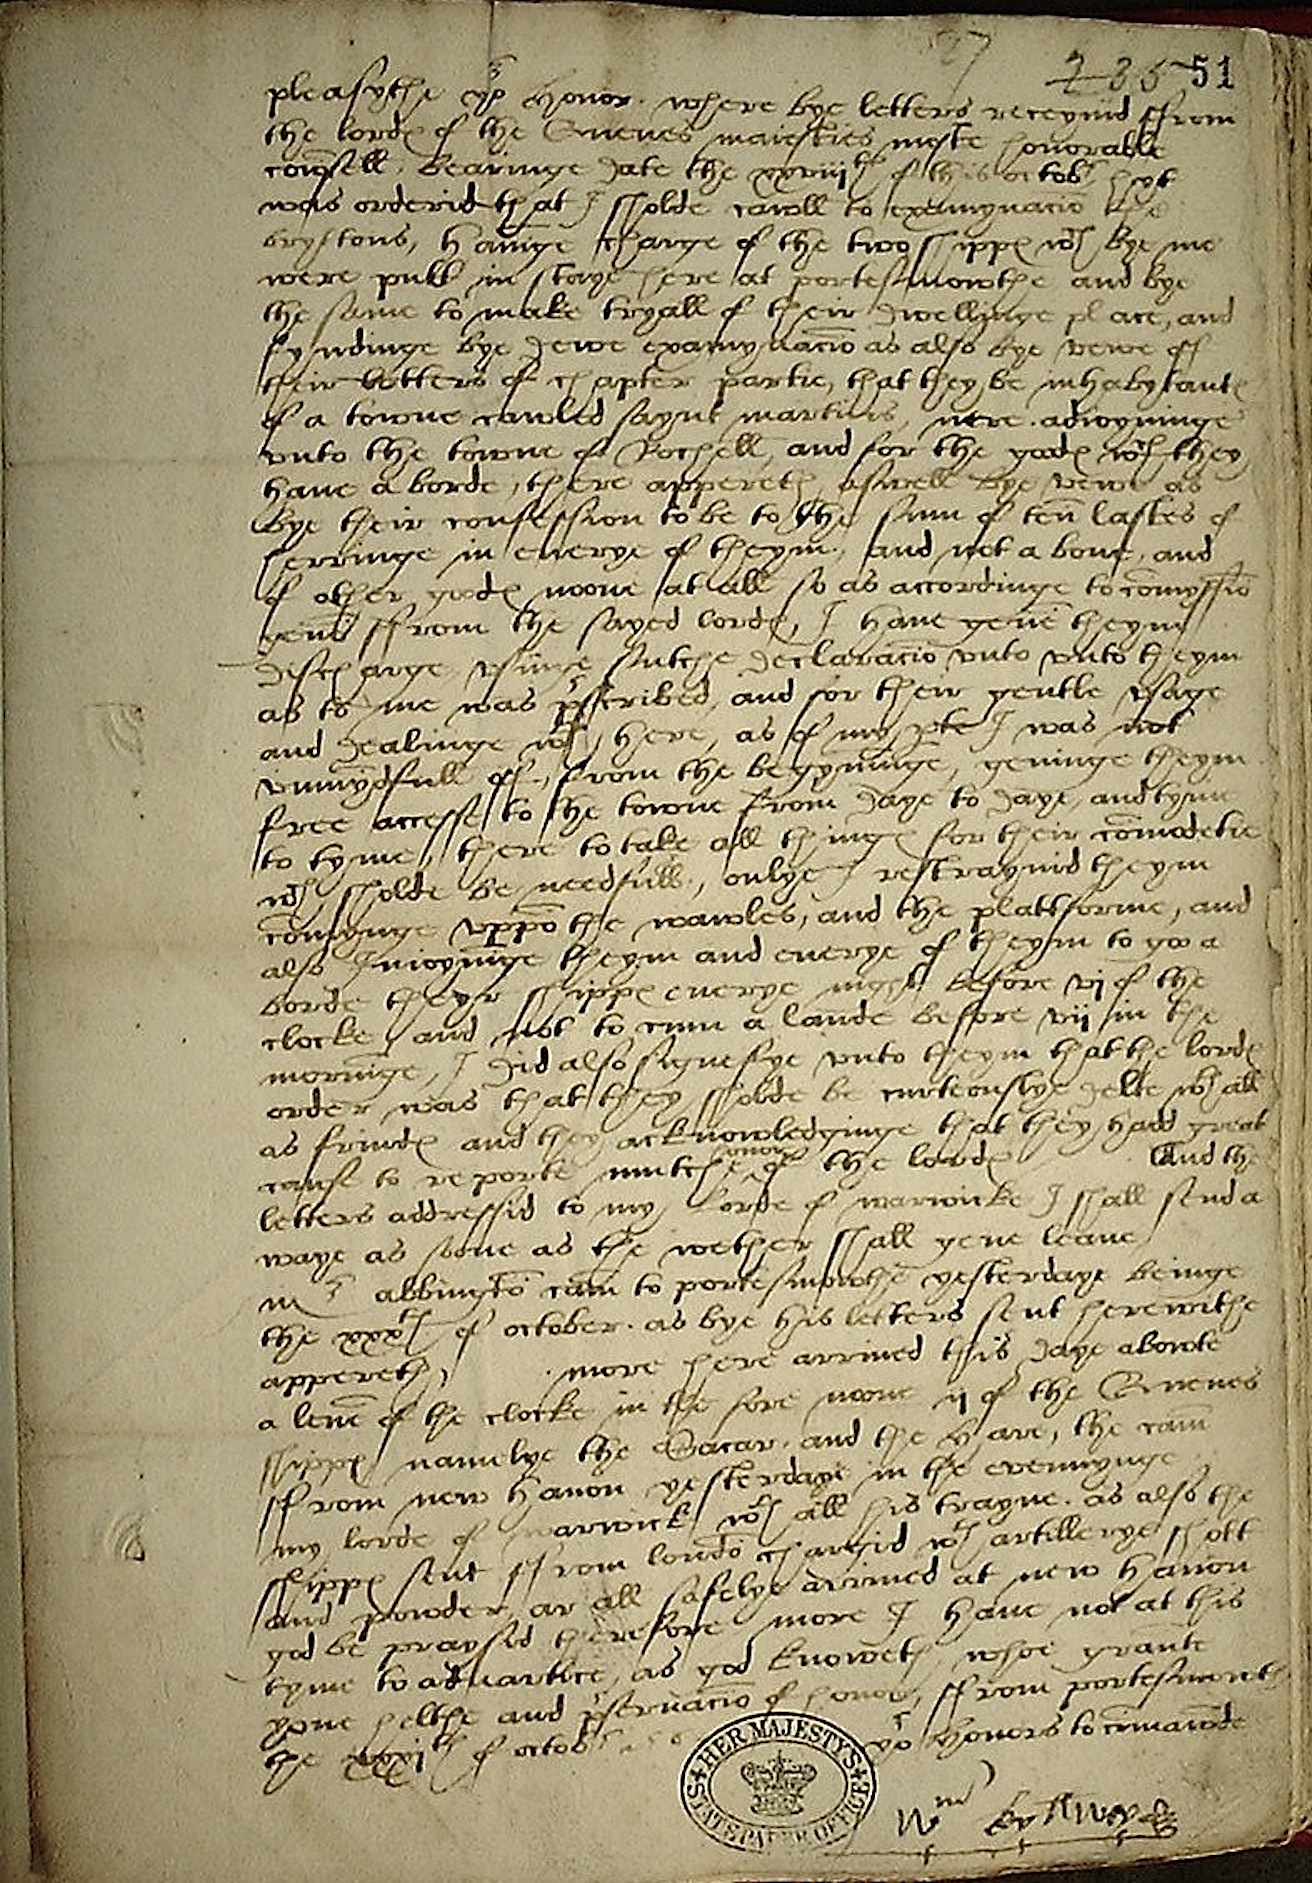 27 235 51
pleasythe yor honor. where bye letters receyvid ffrom
the lordes of the Quenes maiesties moste honorable
counsell. bearinge date the xxviijth of this octobr hyt
was orderid that I sholde cawll to examynacio the
brystons, havinge charge of the two shippes wch bye me
were putt in staye here at portesmowthe and bye
the same to make tryall of their dwellinge place, and
fyndinge bye dewe examynacio as also bye vewe of
their letters of chapter partie, that they be inhabytantes
of a towne cawled saynt martins, nere adioyninge
vnto the towne of Rochell, and for the godes wch they
have a borde, there appereth aswell bye vewe as
bye their confession to be to the sum of ten lastes of
herringe in everye of theym, and not a bove, and
of other godes noone at all so as accordinge to comyssio
ffrom the sayed lordes, I have gevē theym
discharge vsinge sutche declaracio vnto vnto theym
as to me was prscribed, and for their gentle vsage
and dealinge wth here, as of my pte I was not
vnmyndfull of, from the begynninge, gevinge theym
free accesse to the towne from daye to daye, and tyme
to tyme, there to take all thinges for their comodetie
wch sholde be needfull, onlye I restraynid theym
comynge vppo the wawles, and the plattforme, and
also Inioyninge theym and everye of theym to goo a
borde theyr shippes everye night before vj of the
clocke, and not to cum a lande before vij in the
morninge, I did also signefye vnto theym that the lordes
order was that they sholde be curteouslye delte wth all
as frindes and they acknowledginge that they hadd great
cause to reporte mutche honor of the lordes And the
letters addressid to my Lorde of warwicke I shall send a
waye as sone as the wether shall geve leave
mr abbingto cam to portesmowthe yesterdaye beinge
the xxxth of october. as bye his letters sent herewithe
appereth, more here arrived this daye abowte
a leven of the clocke in the fore noone ij of the Quenes
shippes namelye the Sacar. and the hare, the cam
ffrom new havon yesterdaye in the evennynge
my lorde of warwick wth all his trayne. as also the
shippes sent ffrom londo chargid wth artillerye shott
and powder ar all safelye arrived at new havon
god be praysid therefore more I have not at this
tyme to advartice, as god knoweth, whoe grante
yowe helthe and prservacio of honor, ffrom portesmowth
the xxxjth of octobr yor honors to comawnde
HER MAJESTY'S STATE PAPER OFFICE
Wm kyllwaye